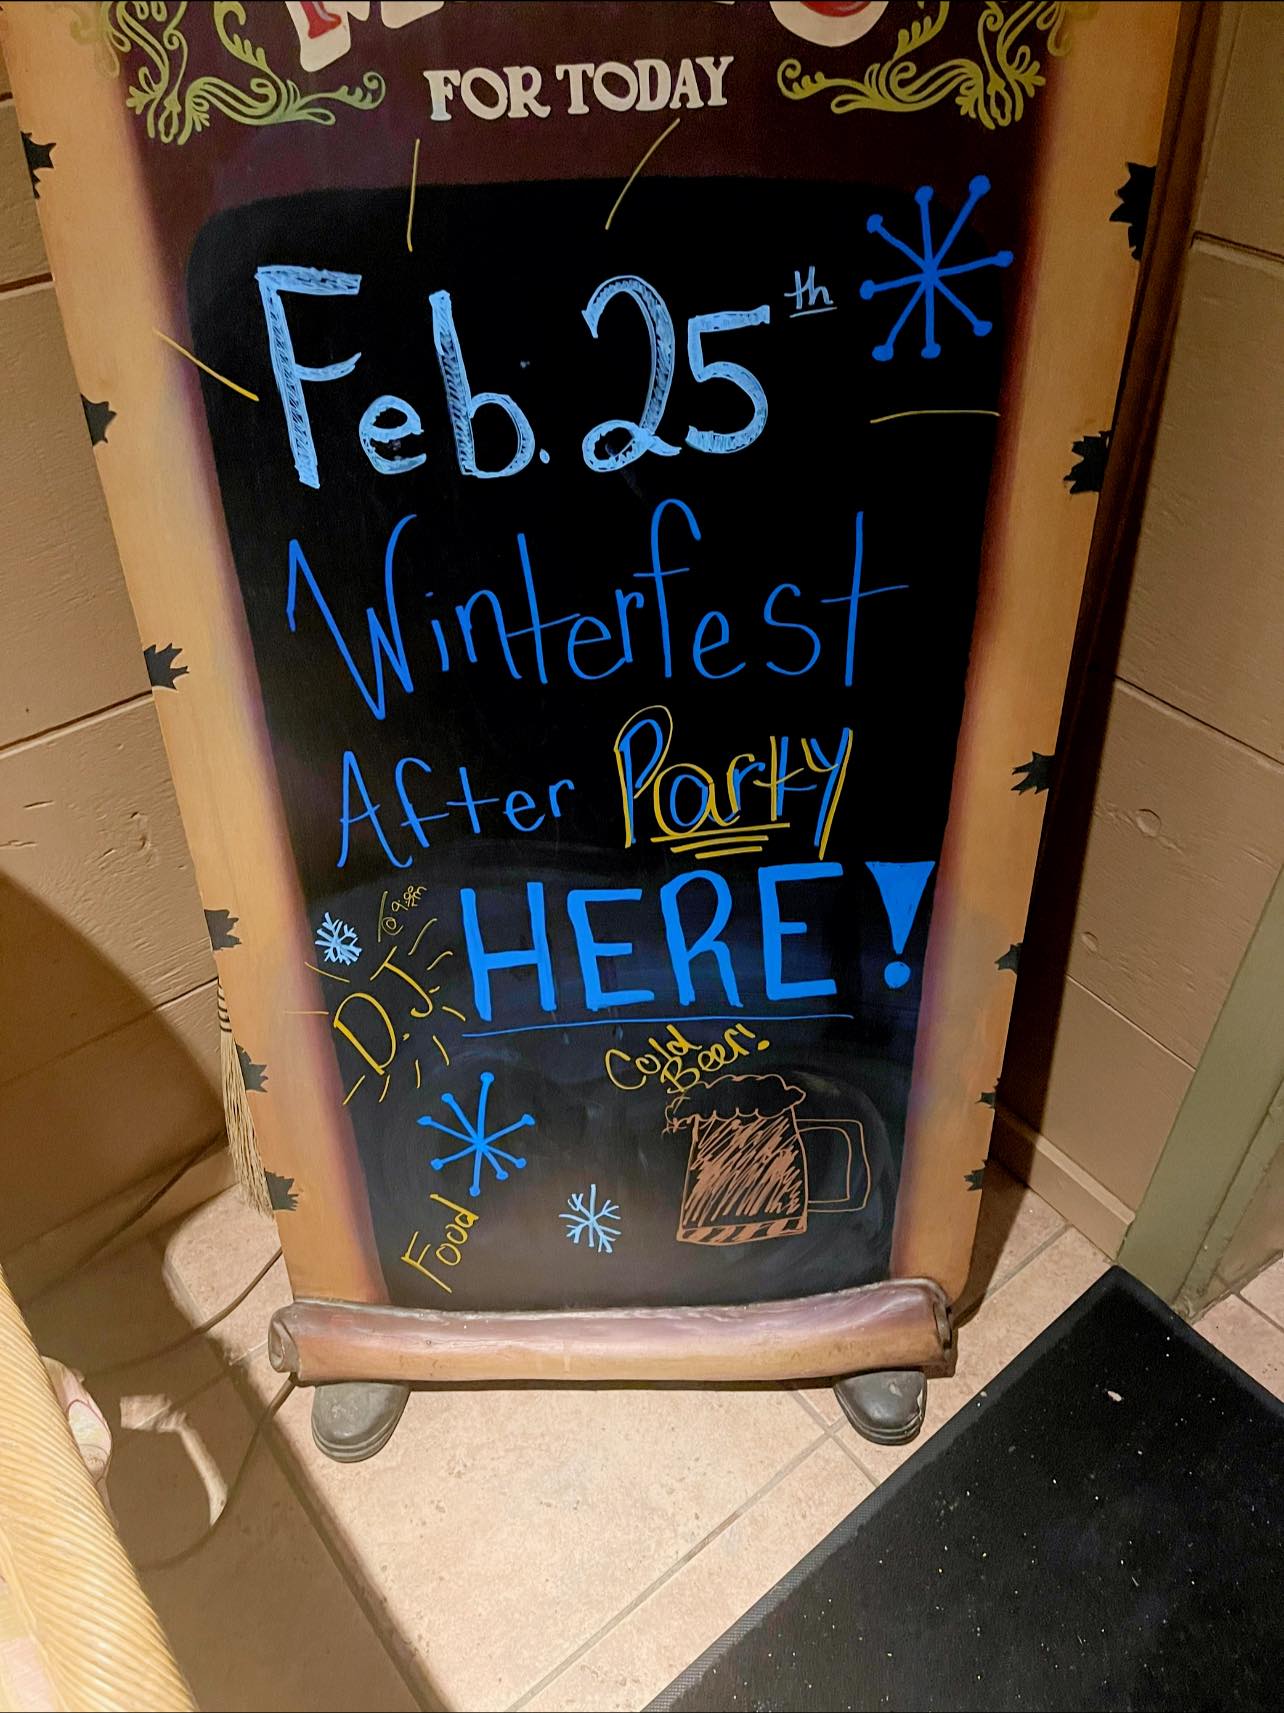 FOR TODAY
Feb. 25th
Winterfest
After Party
HERE!
@ 9:00pm
D.J.
Cold
Beer!
Food